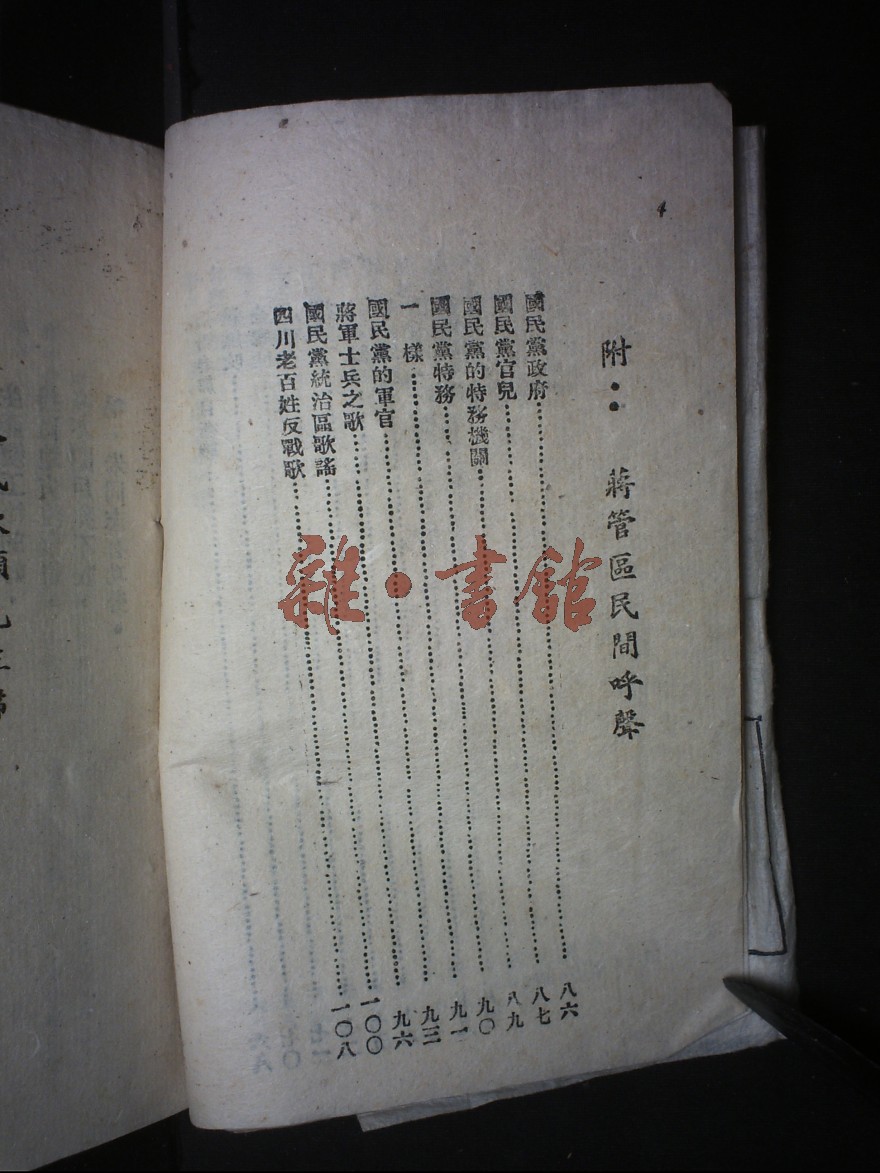 4
附：蔣管區民間呼聲
國民黨政府……八六
國民黨官兒……八七
國民黨的特務機關……八九
國民黨特務……九〇
一樣……九一
國民黨的軍官……九三
蔣軍士兵之歌……九六
國民黨統治區歌謠……一〇〇
四川老百姓反戰歌……一〇八
雜·書館